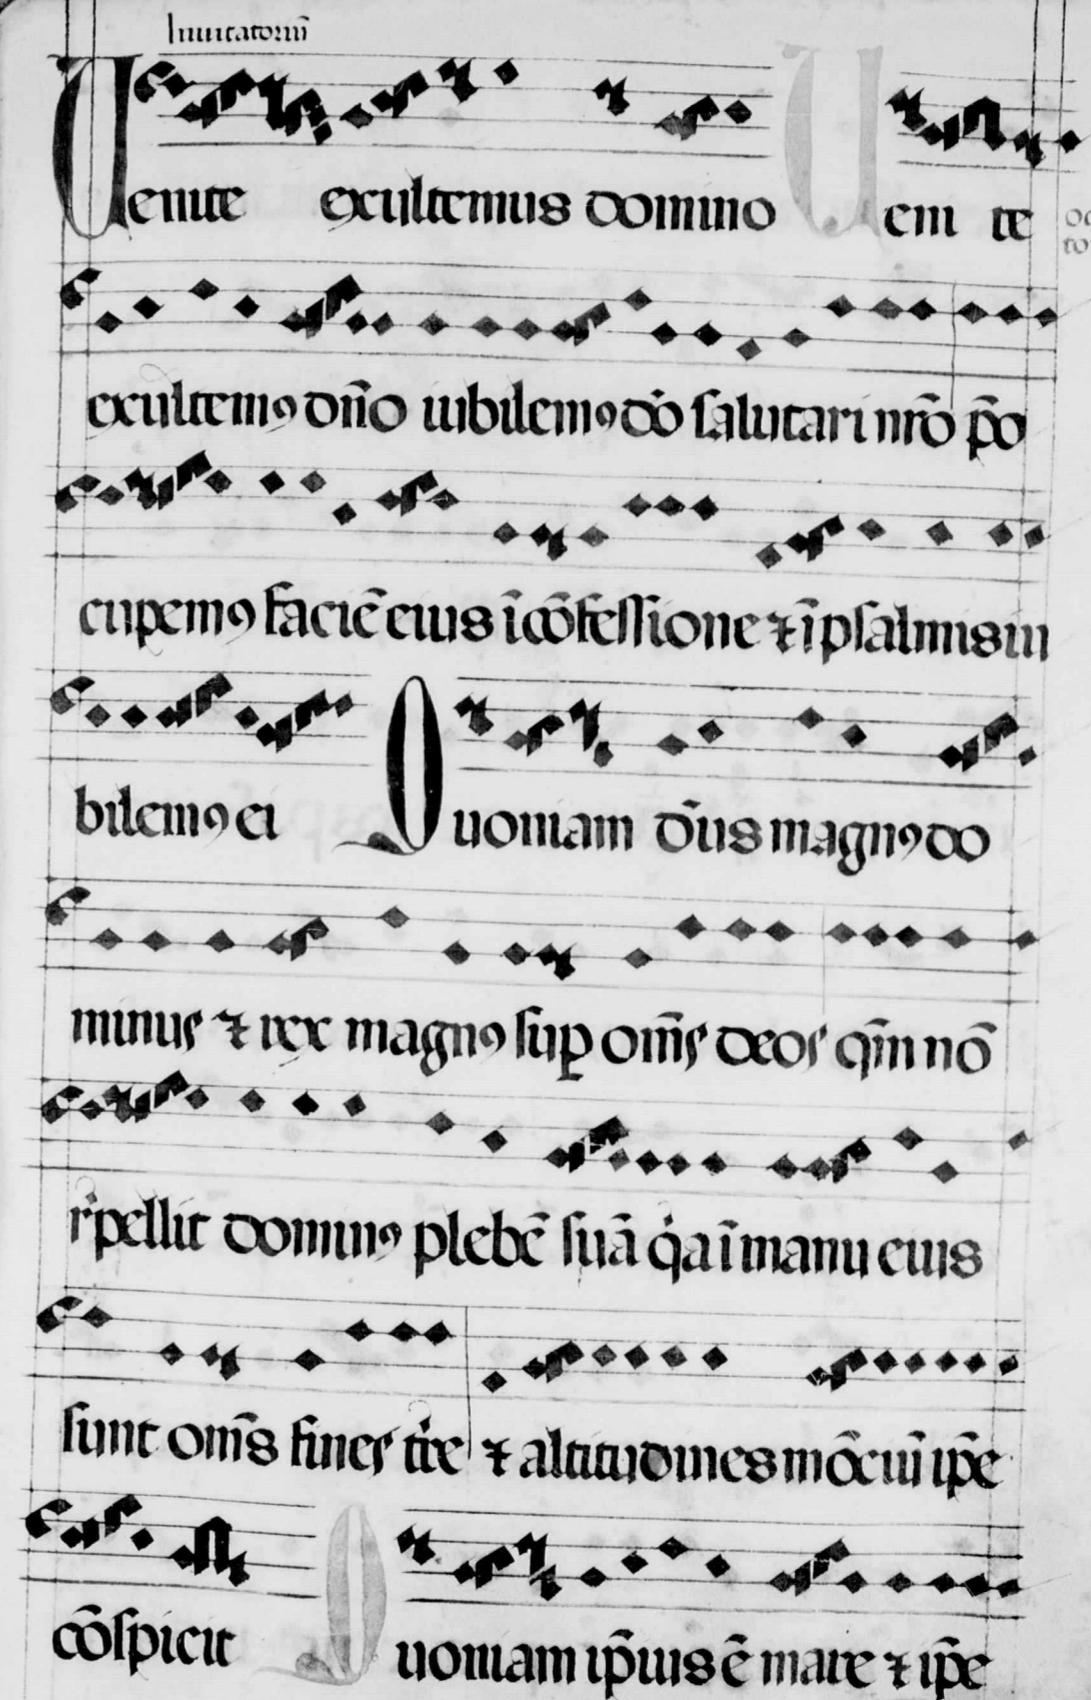 Inuitatoriū
Uenite exultemus domino Ueni te
exultemꝰ dn̄o iubilemꝰ dō salutari nr̄o p̄o
cupemꝰ faciē eius ī cōfessione ⁊ ī psalmis iu
bilemꝰ ei Quoniam d̄us magnꝰ do
minus ⁊ rex magnꝰ suꝑ om̄s deos qm̄ nō
r̓pellit dominꝰ plebē suā q̓a ī manu eius
sunt om̄s fines tr̓re ⁊ altitudines mōciū ip̄e
cōspicit Quoniam ip̄iuis ē mare ⁊ ip̄e